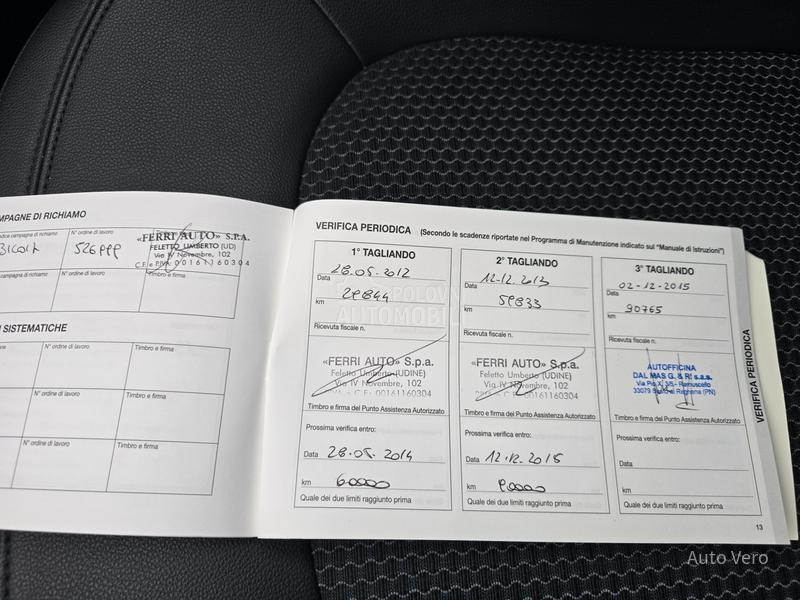 MPAGNE DI RICHIAMO
odice campagna di richiamo
N° ordine di lavoro
«FERRI AUTO» S.P.A.
FELETTO UMBERTO (UD)
Via IV Novembre, 102
C.F. e P.IVA: 00161160304
campagna di richiamo
N° ordine di lavoro
Timbro e firma
I SISTEMATICHE
N° ordine di lavoro
Timbro e firma
N° ordine di lavoro
Timbro e firma
N° ordine di lavoro
Timbro e firma
VERIFICA PERIODICA (Secondo le scadenze riportate nel Programma di Manutenzione indicato sul "Manuale di Istruzioni")
1° TAGLIANDO
Data 28.05.2012
km 29844
Ricevuta fiscale n.
«FERRI AUTO» S.p.a.
Feletto Umberto (UDINE)
Via IV Novembre, 102
C.F. 00161160304
Timbro e firma del Punto Assistenza Autorizzato
Prossima verifica entro:
Data 28.05.2014
km 60000
Quale dei due limiti raggiunto prima
2° TAGLIANDO
Data 12.12.2013
km 59833
Ricevuta fiscale n.
«FERRI AUTO» S.p.a.
Feletto Umberto (UDINE)
Via IV Novembre, 102
C.F. 00161160304
Timbro e firma del Punto Assistenza Autorizzato
Prossima verifica entro:
Data 12.12.2015
km 90000
Quale dei due limiti raggiunto prima
3° TAGLIANDO
Data 02-12-2015
km 90765
Ricevuta fiscale n.
AUTOFFICINA
DAL MAS G. & R. s.a.s.
Via Pio X, 3/5 - Ramuscello
33079 Sesto al Reghena (PN)
Timbro e firma del Punto Assistenza Autorizzato
Prossima verifica entro:
Data
km
Quale dei due limiti raggiunto prima
VERIFICA PERIODICA
13
POLOVNI
AUTOMOBILI
Auto Vero